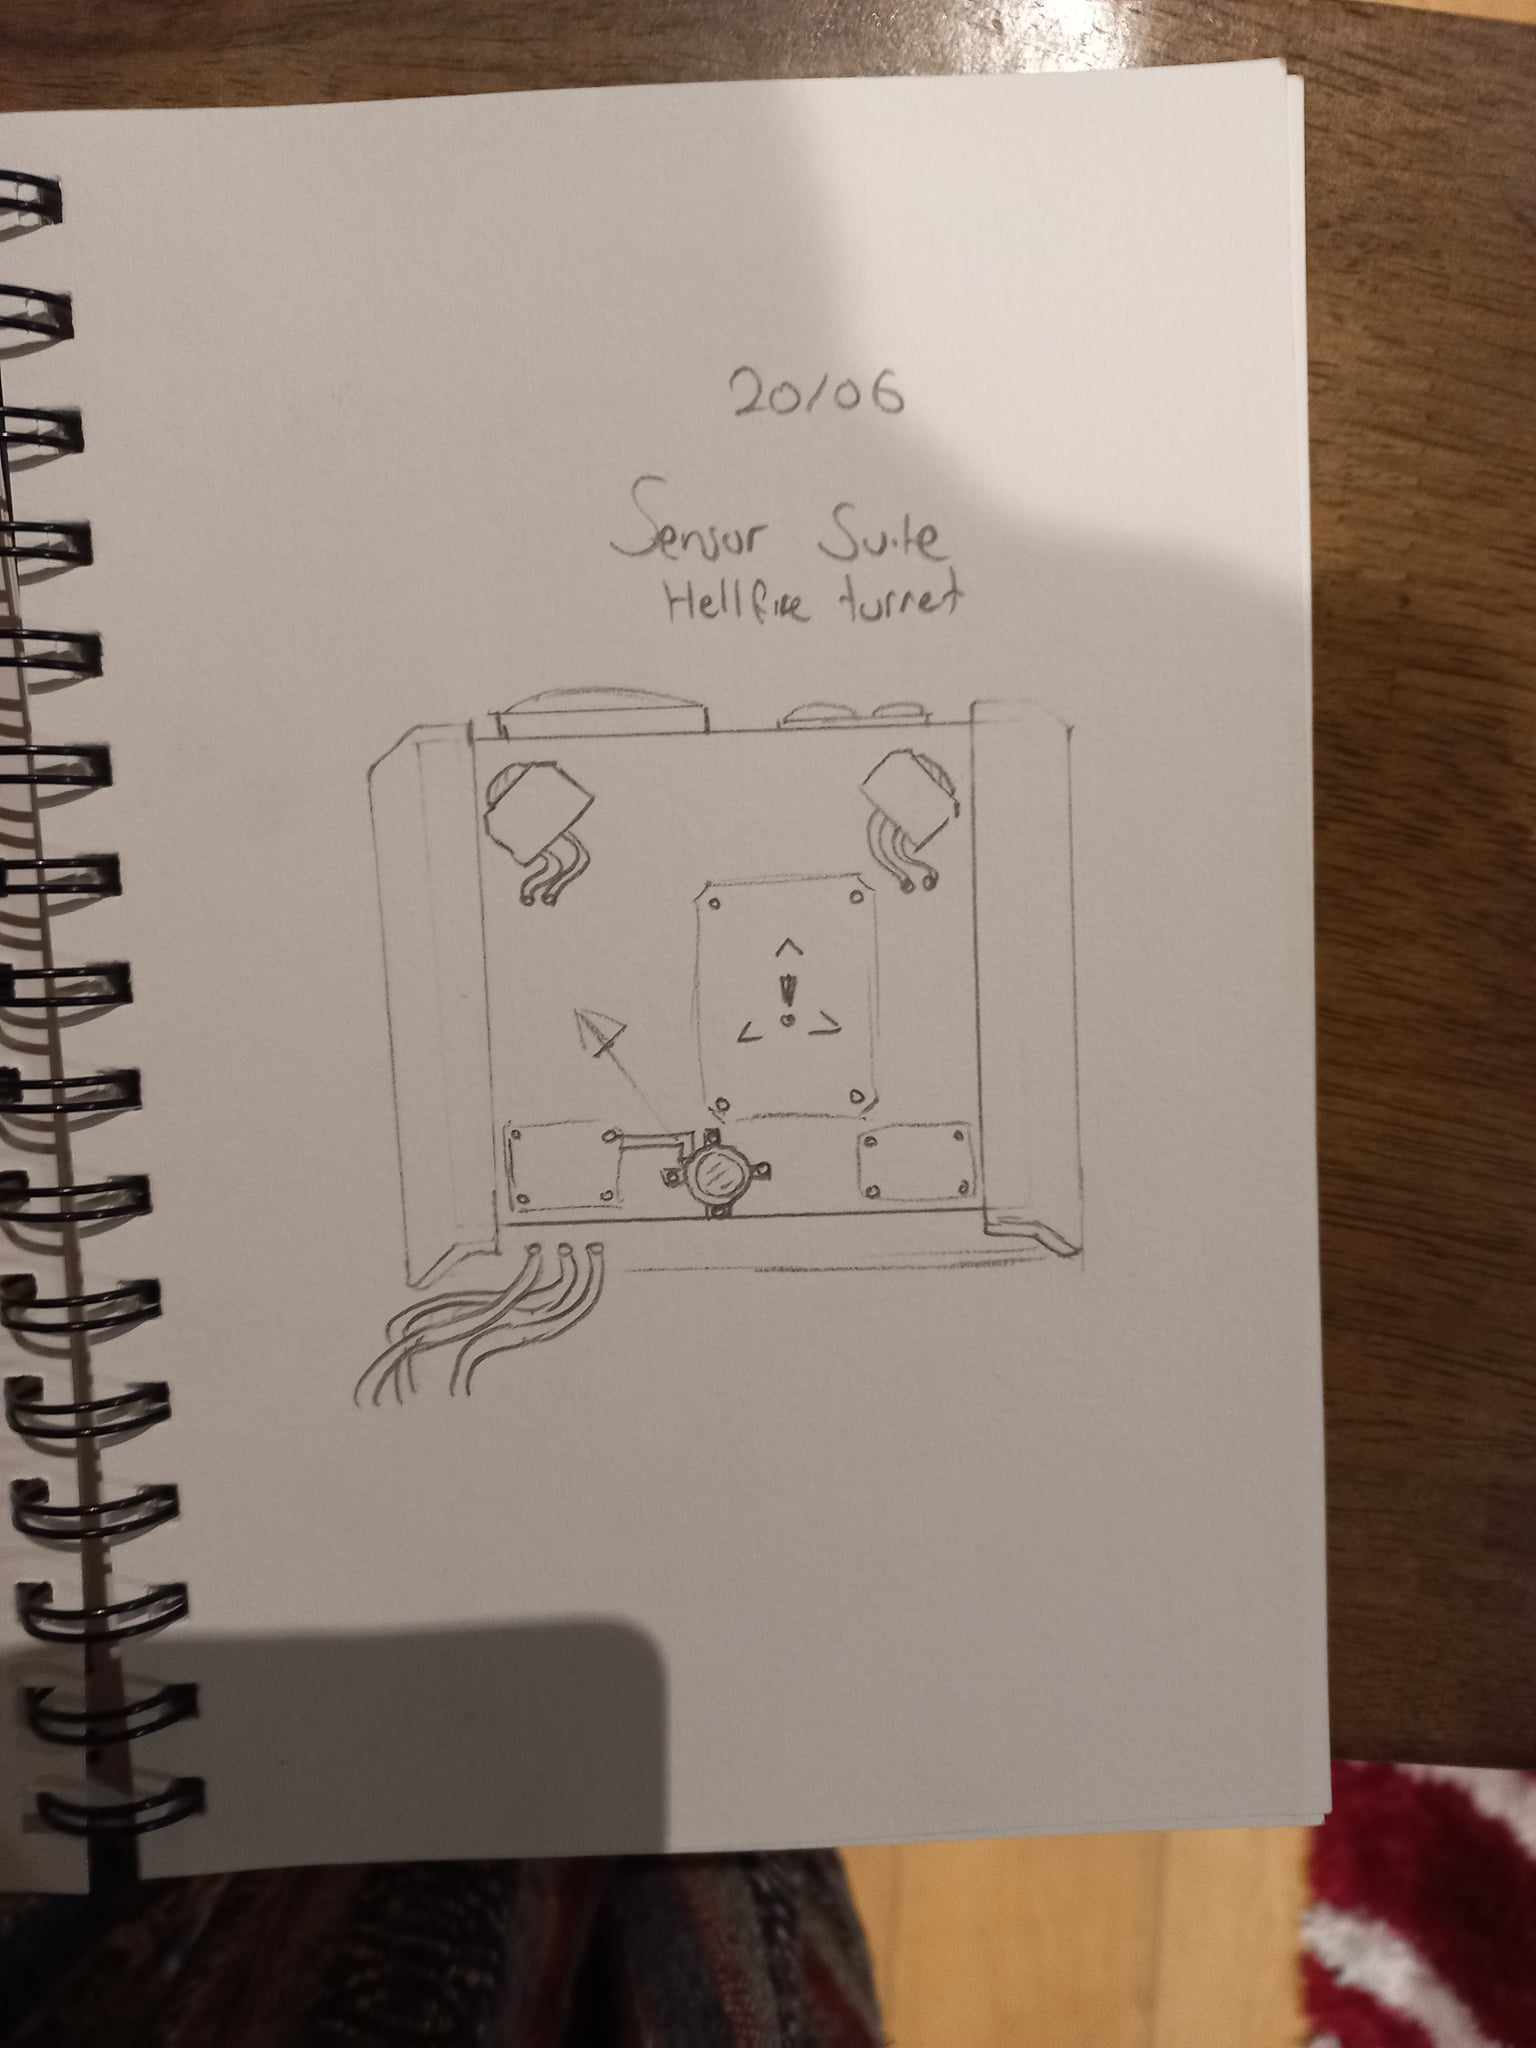 20/06
Sensor Suite
Hellfire turret
!